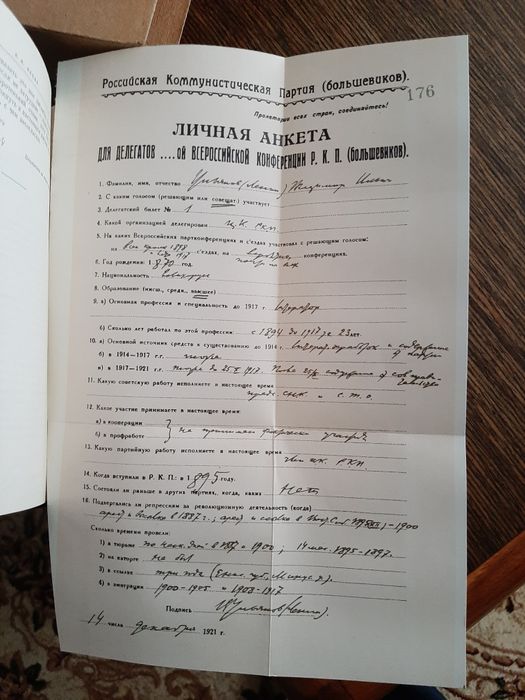 Российская Коммунистическая Партия (большевиков).
176
Пролетарии всех стран, соединяйтесь!
ЛИЧНАЯ АНКЕТА
ДЛЯ ДЕЛЕГАТОВ ....ой ВСЕРОССИЙСКОЙ КОНФЕРЕНЦИИ Р. К. П. (большевиков).
1. Фамилия, имя, отчество Ульянов (Ленин) Владимир Ильич
2. С каким голосом (решающим или совещат.) участвует
3. Делегатский билет № 1
4. Какой организацией делегирован Ц.К. РКП
5. На каких Всероссийских партконференциях и с'ездах участвовал с решающим голосом:
на всех кроме 1898 с'ездах, на конференциях.
6. Год рождения: 1870 год.
7. Национальность великорусс
8. Образование (нисш., средн., высшее)
9. а) Основная профессия и специальность до 1917 г. литератор
б) Сколько лет работал по этой профессии: с 1894 до 1917 = 23 лет.
10. а) Основной источник средств к существованию до 1914 г. литерат. заработок и содержание от партии
б) в 1914—1917 г.г. тоже
в) в 1917—1921 г.г. тоже до 25/X 1917. После 25/X содержание от сов.
11. Какую советскую работу исполняете в настоящее время
пред. СНК и С.Т.О.
12. Какое участие принимаете в настоящее время:
а) в кооперации
б) в профработе
не принимаю фактически участия
13. Какую партийную работу исполняете в настоящее время член ЦК. РКП.
14. Когда вступили в Р. К. П.: в 1895 году.
15. Состояли ли раньше в других партиях, когда, каких нет
16. Подвергались ли репрессиям за революционную деятельность (когда)
арест и высылка в 1887 г.; арест и ссылка в 1900
Сколько времени провели:
1) в тюрьме по неск. дней в 1887 и 1900; 14 мес. 1895-1897.
2) на каторге не был
3) в ссылке три года (Енис. губ., Минус. у.)
4) в эмиграции 1900-1905 и 1908-1917
Подпись В. Ульянов (Ленин).
14 числа декабря 1921 г.